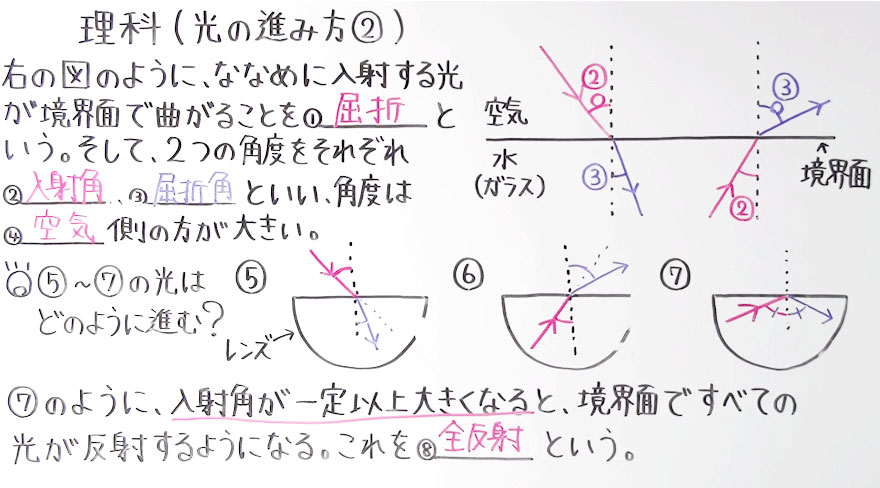 理科(光の進み方②)
右の図のように、ななめに入射する光
が境界面で曲がることを①屈折と
いう。そして、2つの角度をそれぞれ
②入射角、③屈折角といい、角度は
④空気側の方が大きい。
②
③
空気
水
(ガラス)
③
②
境界面
⑤~⑦の光は
どのように進む?
⑤
⑥
⑦
レンズ
⑦のように、入射角が一定以上大きくなると、境界面ですべての
光が反射するようになる。これを⑧全反射という。